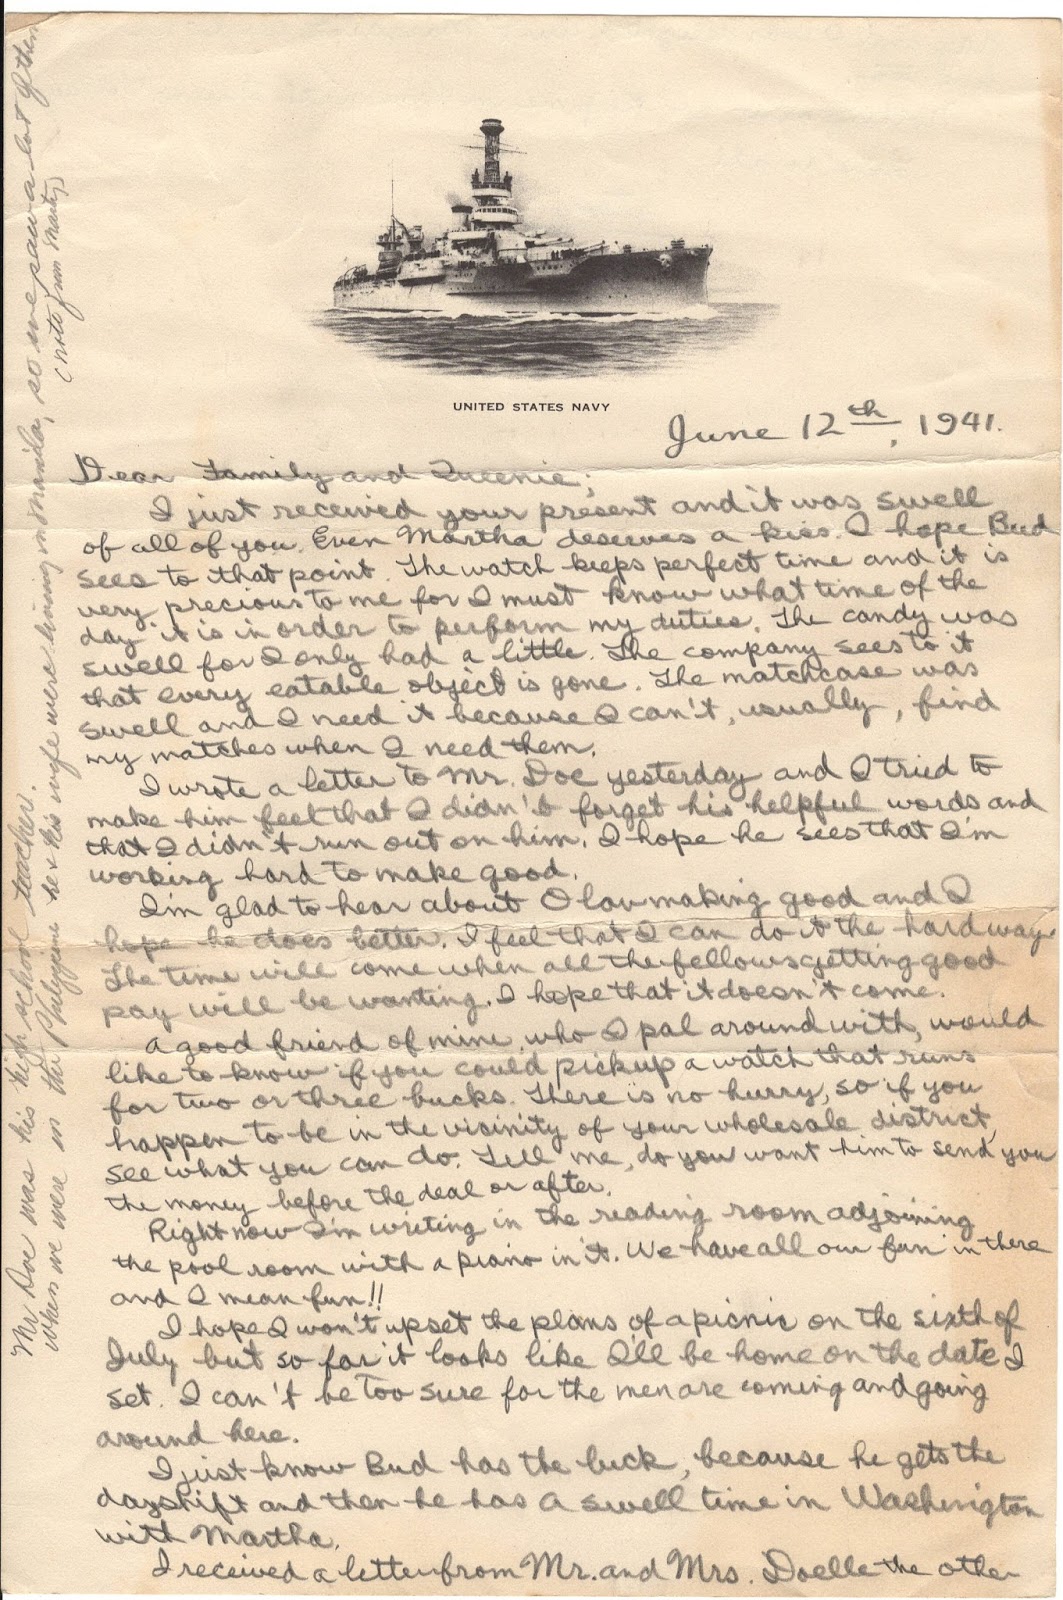 UNITED STATES NAVY
June 12th, 1941.
Dear Family and Queenie;
I just received your present and it was swell
of all of you. Even Martha deserves a kiss. I hope Bud
sees to that point. The watch keeps perfect time and it is
very precious to me for I must know what time of the
day it is in order to perform my duties. The candy was
swell for I only had a little. The company sees to it
that every eatable object is gone. The matchcase was
swell and I need it because I can't, usually, find
my matches when I need them.
I wrote a letter to Mr. Doe yesterday and I tried to
make him feel that I didn't forget his helpful words and
that I didn't run out on him. I hope he sees that I'm
working hard to make good.
I'm glad to hear about Olav making good and I
hope he does better. I feel that I can do it the hard way.
The time will come when all the fellows getting good
pay will be wanting. I hope that it doesn't come.
A good friend of mine, who I pal around with, would
like to know if you could pickup a watch that runs
for two or three bucks. There is no hurry, so if you
happen to be in the vicinity of your wholesale district,
see what you can do. Tell me, do you want him to send you
the money before the deal or after.
Right now I'm writing in the reading room adjoining
the pool room with a piano in it. We have all our fun in there
and I mean fun!!
I hope I won't upset the plans of a picnic on the sixth of
July but so far it looks like I'll be home on the date I
set. I can't be too sure for the men are coming and going
around here.
I just know Bud has the luck, because he gets the
dayshift and then he has a swell time in Washington
with Martha.
I received a letter from Mr. and Mrs. Doelle the other
Mr Doe was his high school teacher.
When we were in the Philippines he & his wife were living in Manila, so we saw a lot of them
(note from Marty)